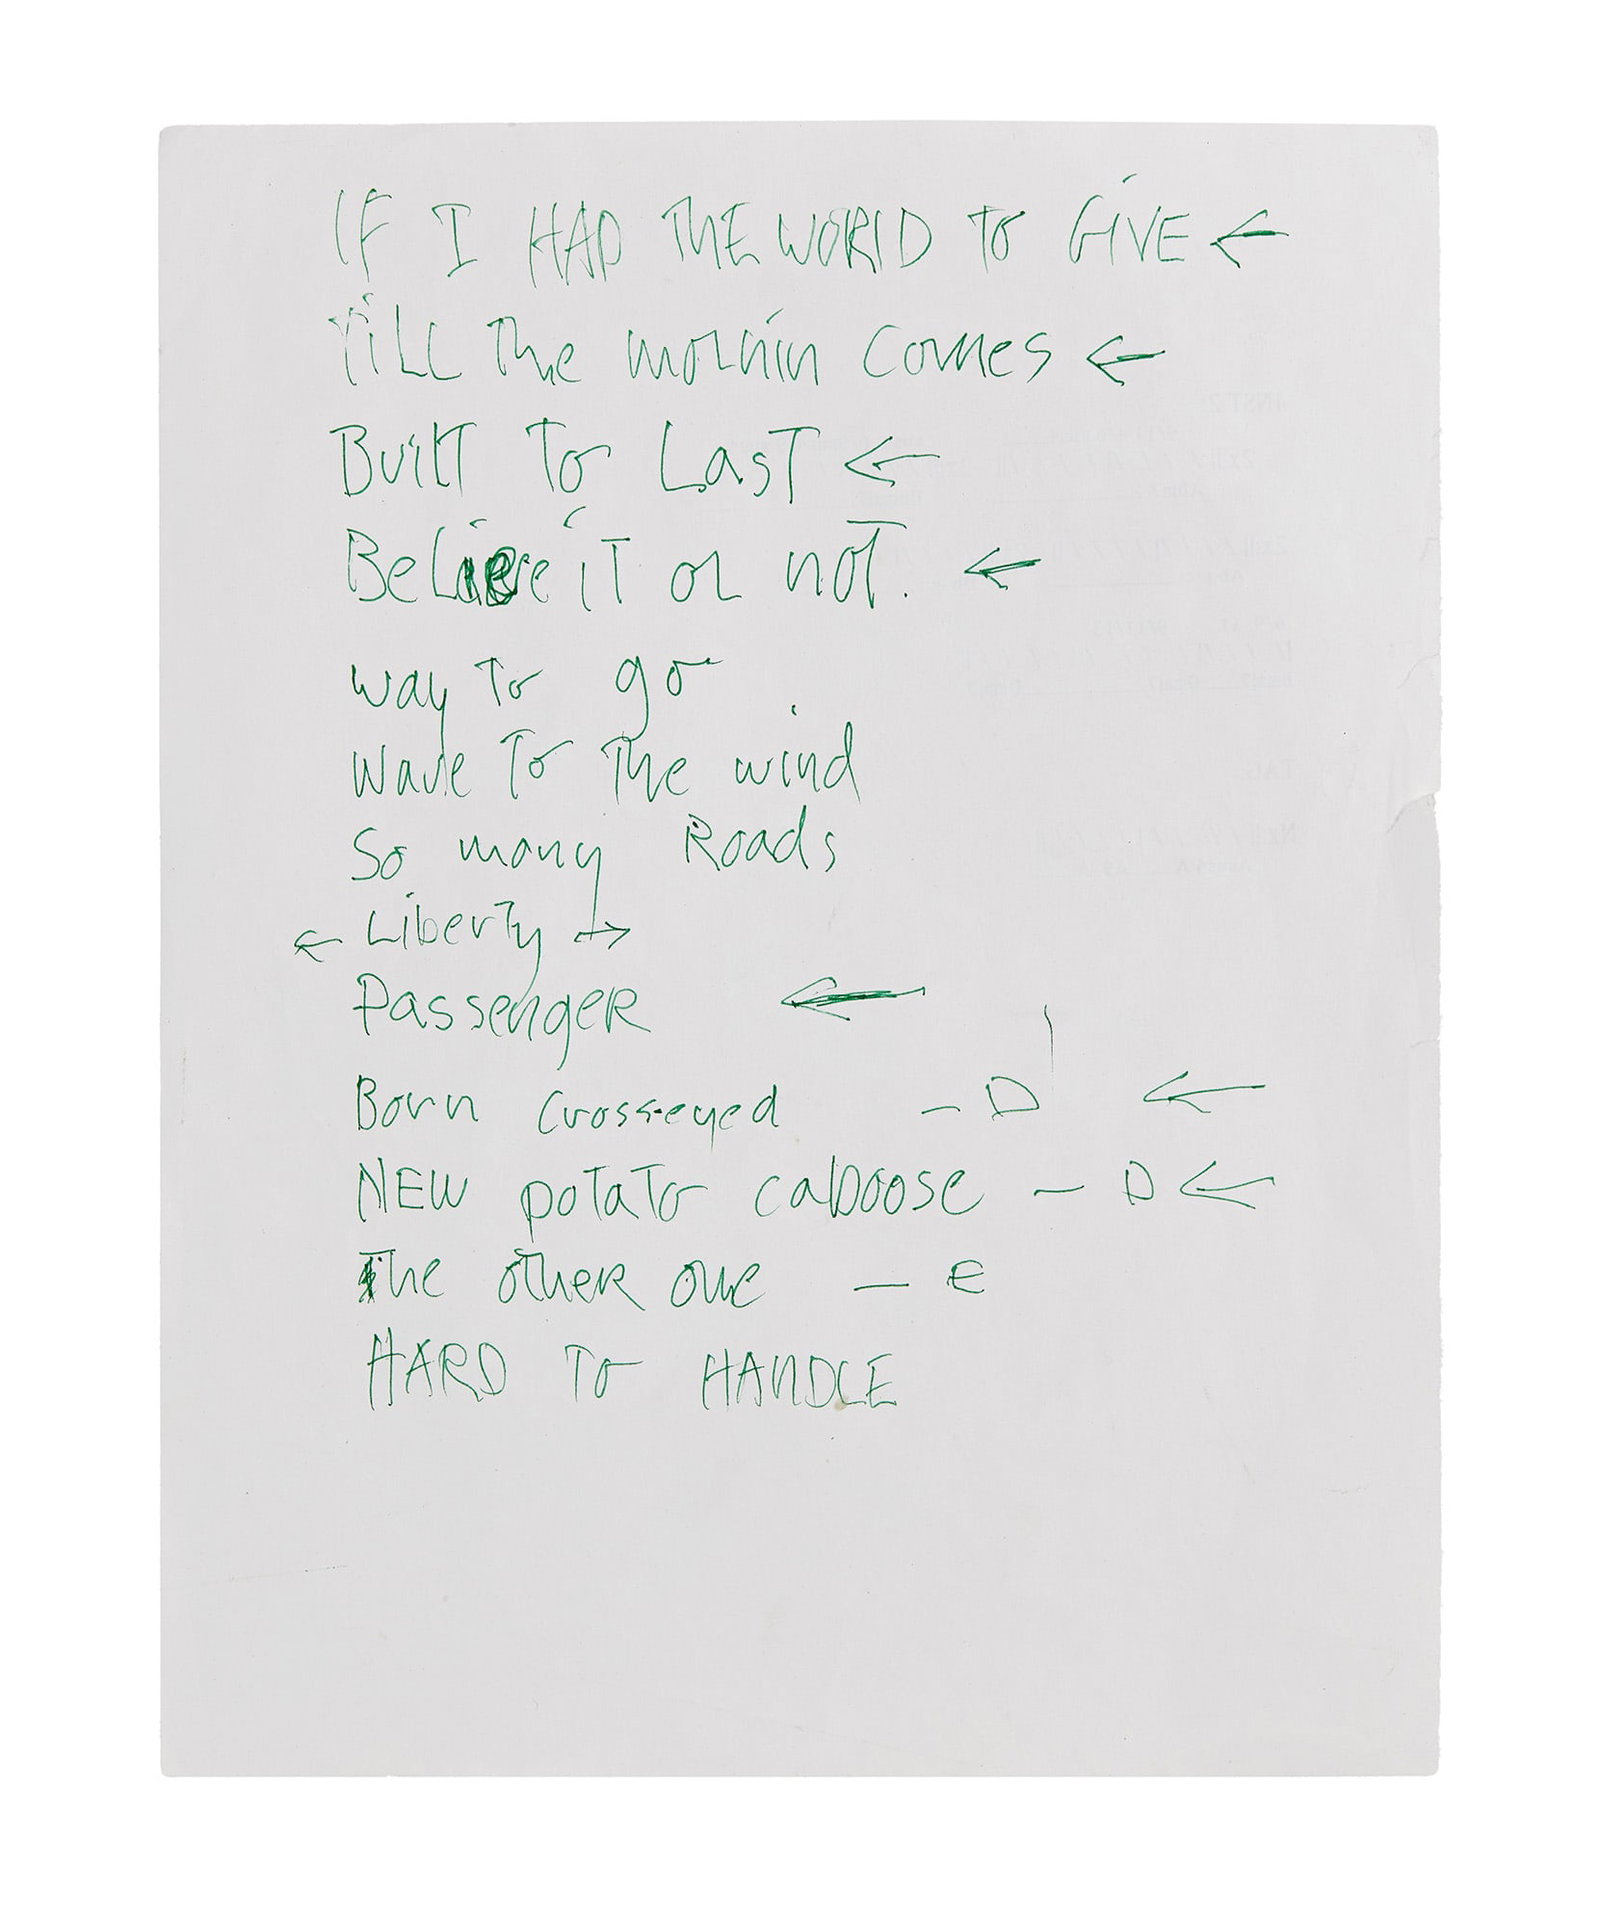 IF I HAD THE WORLD To GIVE ←
TiLL The mornin Comes ←
BuilT To LasT ←
BeLieve iT or noT. ←
way To go
Wave To The wind
So many Roads
← LiberTy →
PassengeR ←
Born Cross-eyed – D ←
NEW poTaTo caboose – D ←
The oTheR one – E
HARD To HAnDLE